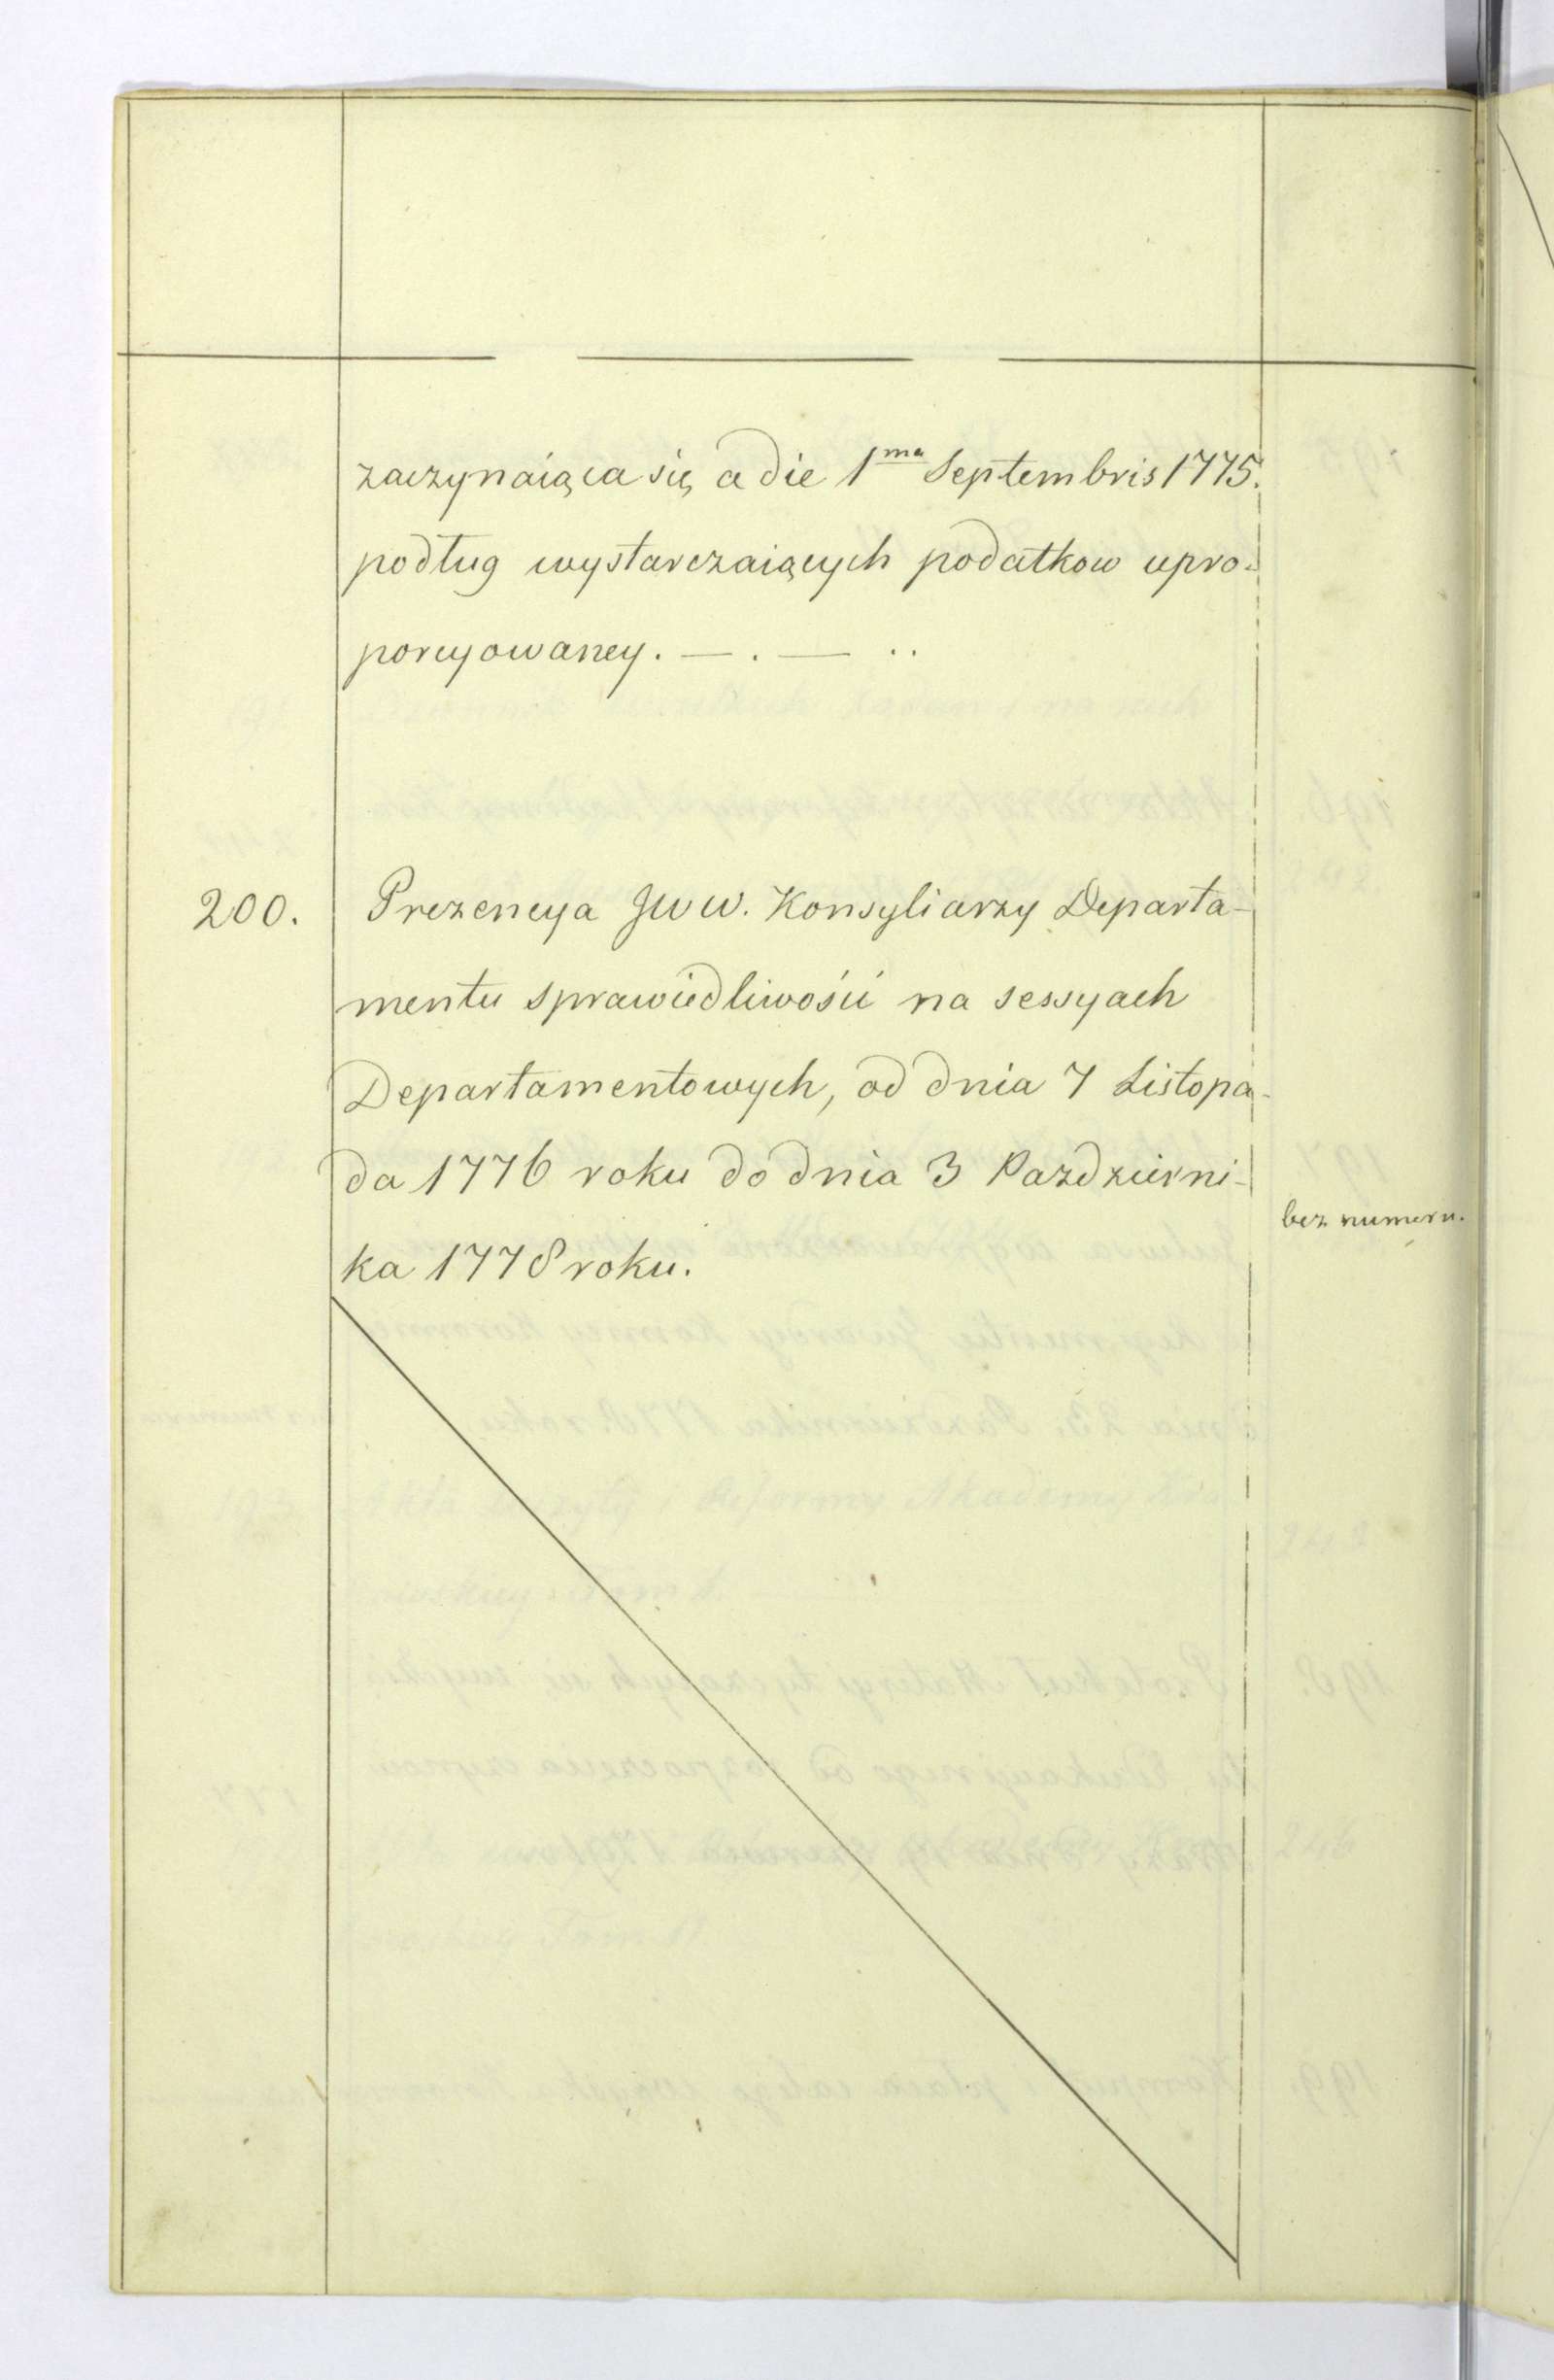 zaczynaiąca się a die 1ma Septembris 1775.
podług wystarczaiących podatkow upro-
porcyowaney. — . — ..
200. Prezencya JWW. Konsyliarzy Departa-
mentu sprawiedliwości na sessyach
Departamentowych, od dnia 7 Listopa-
da 1776 roku do dnia 3 Pazdzierni-
bez numeru.
ka 1778 roku.